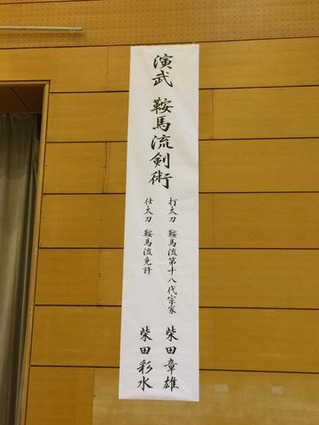 演武 鞍馬流剣術
打太刀 鞍馬流第十八代宗家 柴田章雄
仕太刀 鞍馬流免許 柴田彩水